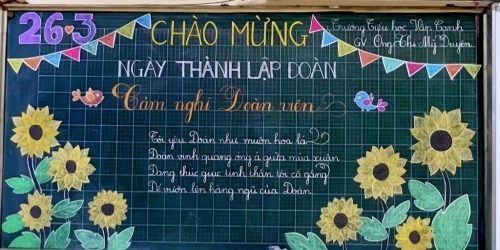 26.3
CHÀO MỪNG
Trường Tiểu học Vân Canh
GV. Ong Thị Mỹ Duyên
NGÀY THÀNH LẬP ĐOÀN
Cảm nghĩ Đoàn viên
Tôi yêu Đoàn như muôn hoa lá
Đoàn vinh quang ong a giữa mùa xuân
Đang thúc giục tinh thần tôi cố gắng
Để vươn lên hàng ngũ của Đoàn.